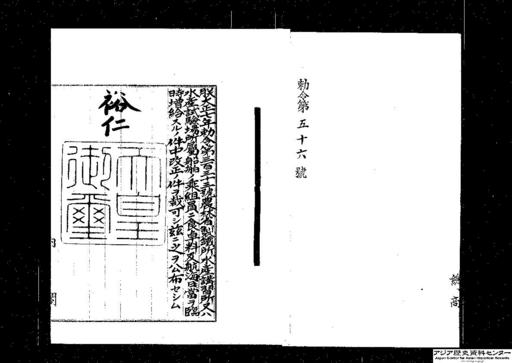 勅令第五十六號
朕大正十年勅令第三百三十三號農務省製鐵所水產講習所又ハ
水產試驗場所屬船舶ノ乘組員ニ食卓料及航海日當ヲ臨
時增給スルノ件中改正ノ件ヲ裁可シ茲ニ之ヲ公布セシム
裕仁
天皇御璽
內閣
アジア歴史資料センター
Japan Center for Asian Historical Records